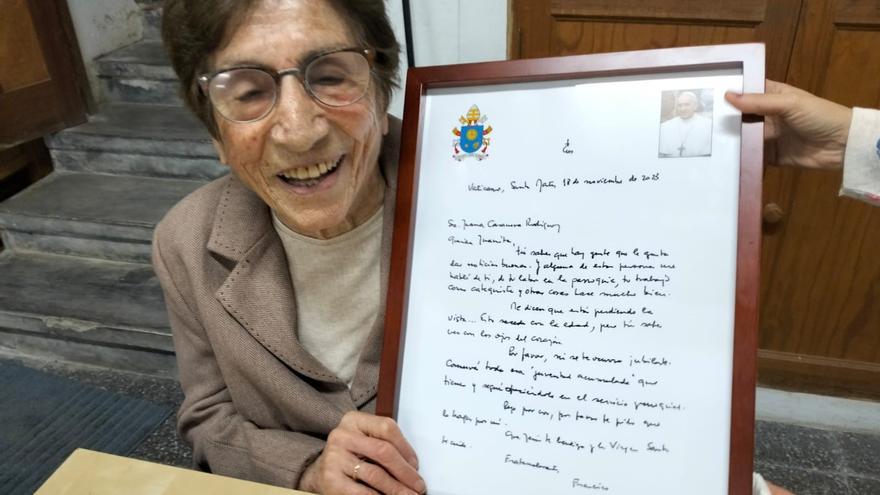 Vaticano, Santa Marta 18 de noviembre de 2023
Sra. Juana Casanova Rodríguez
Querida Juanita,
Tú sabes que hay gente que le gusta
las noticias buenas. Y alguna de estas personas me
habló de ti, de tu labor en la parroquia, tu trabajo
como catequista y otras cosas hace mucho bien.
Me dicen que estás perdiendo la
vista... Esto sucede con la edad, pero tú sabes
ver con los ojos del corazón
Por favor, no se te ocurra jubilarte.
Conservá toda esa "juventud acumulada" que
tienes y seguí ofreciéndola en el servicio parroquial.
Rezo por vos, por favor te pido que
lo hagas por mí.
Que Jesús te bendiga y la Virgen Santa
te cuide.
Fraternalmente,
Francisco